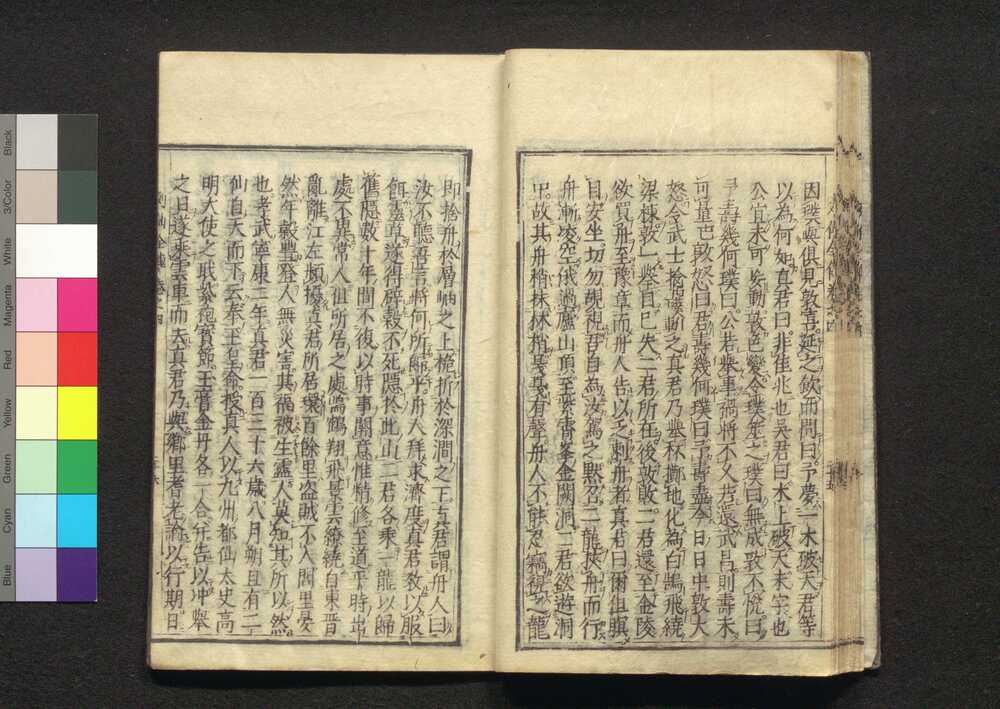 因璞與俱見敦喜延之飲而問曰予夢一木破天君等
以為何如真君曰非佳兆也吳君曰木上破天未字也
公宜未可妄動敦色變令璞筮之璞曰無成敦不悅曰
予壽幾何璞曰公若舉事禍將不久若還武昌則壽未
可量也敦怒曰君壽幾何璞曰予壽盡今日日中敦大
怒令武士擒璞斬之真君乃舉杯擲地化為白鵠飛繞
梁棟敦一舉目已失二君所在後敦敗二君還至金陵
欲買舟至豫章而舟人告以乏刺舟者真君曰爾但瞑
目安坐切勿覘視吾自為汝駕之默召二龍挾舟而行
舟漸凌空俄過廬山頂至紫霄峯金闕洞二君欲遊洞
中故其舟稍抹林梢戞戞有聲舟人不能忍竊視之龍
即捨舟於層岫之上桅折於深澗之下真君謂舟人曰
汝不聽吾言將何所歸乎舟人拜求濟度真君教以服
餌靈草遂得辟穀不死隱於此山二君各乘一龍以歸
舊隱數十年間不復以時事關意惟精修至道平時出
處不異常人但所居之處鳴鶴翔飛景雲繚繞自東晉
亂離江左頻擾真君所居環百餘里盜賊不入閭里晏
然年穀豐登人無災害其福被生靈人莫知其所以然
也孝武寧康二年真君一百三十六歲八月朔旦有二
仙自天而下云奉玉皇命授真人以九州都仙太史高
明大使之職紫袍寶節玉膏金丹各一合并告以冲舉
之日遂乘雲車而去真君乃與鄉里耆老諭以行期日
Black
3/Color
White
Magenta
Red
Yellow
Green
Cyan
Blue